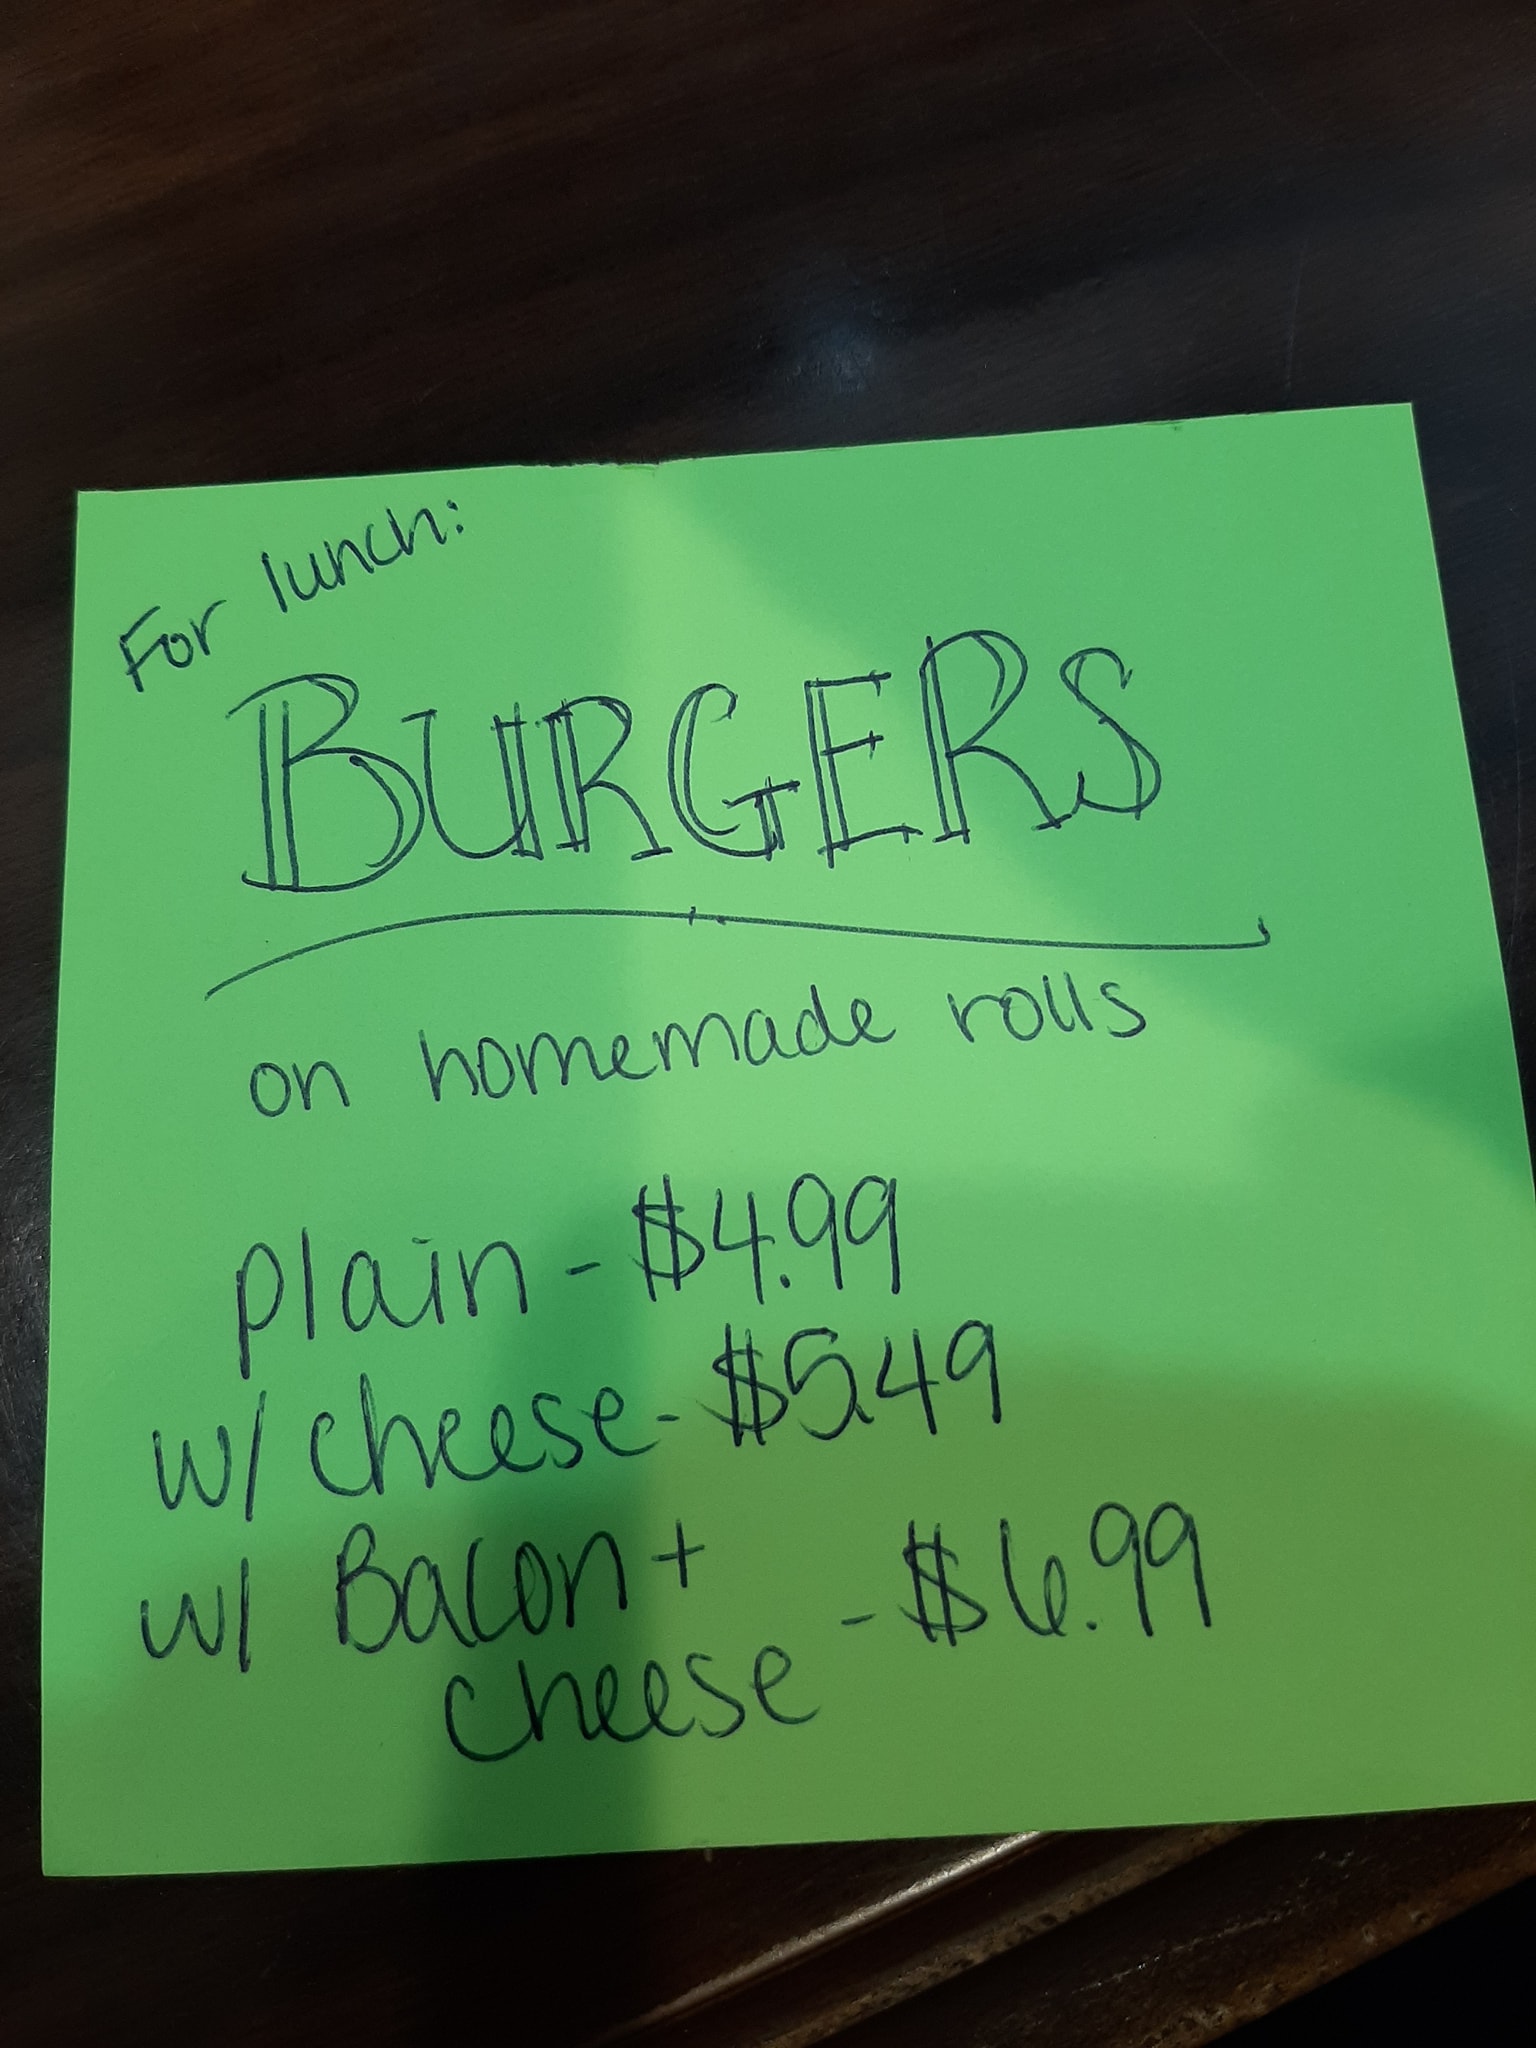 For lunch:
BURGERS
on homemade rolls
plain - $4.99
w/ cheese - $5.49
w/ Bacon +
cheese - $6.99